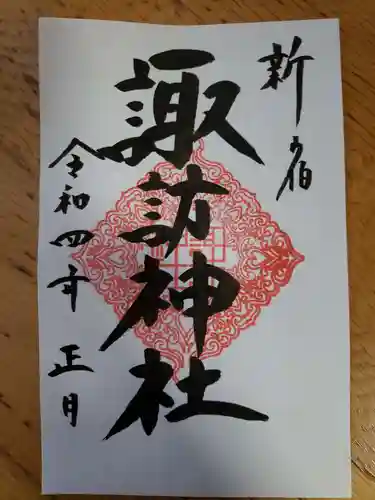 新宿
諏訪神社
令和四年正月